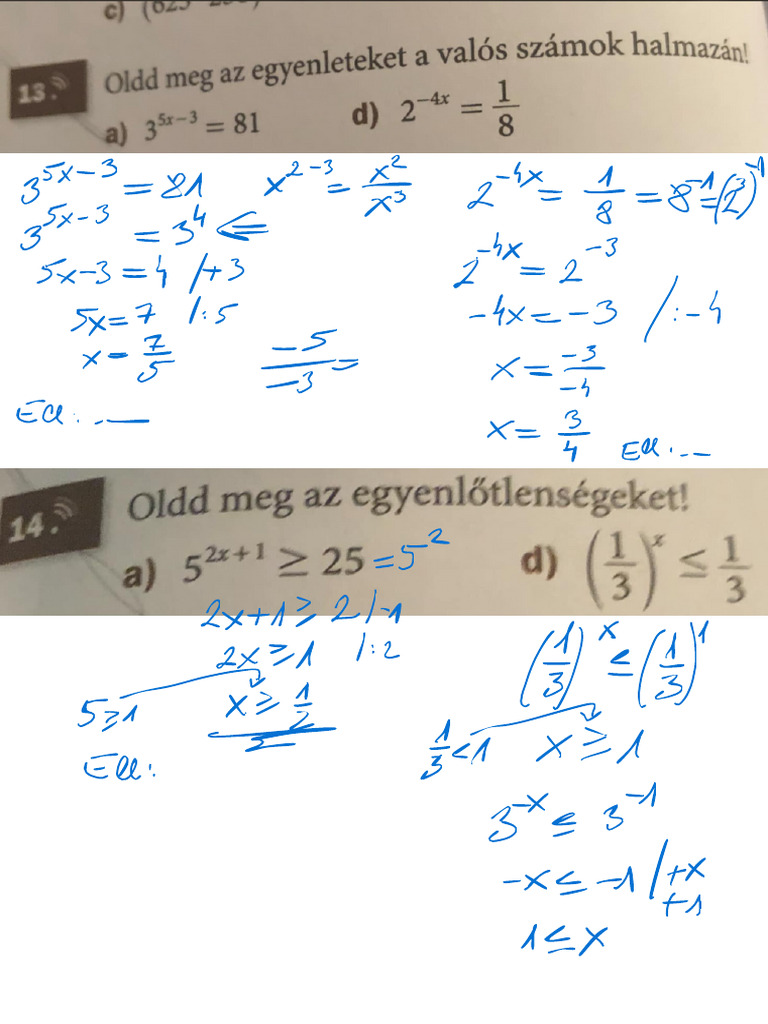 c) (625
13. Oldd meg az egyenleteket a valós számok halmazán!
a) 3^(5x-3) = 81 d) 2^(-4x) = 1/8
3^(5x-3) = 81
3^(5x-3) = 3^4 ⇐
5x-3 = 4 /+3
5x = 7 /:5
x = 7/5
Ell: .—
x^(2-3) = x^2/x^3
-5/-3 =
2^(-4x) = 1/8 = 8^(-1) = (2^3)^(-1)
2^(-4x) = 2^(-3)
-4x = -3 /:-4
x = -3/-4
x = 3/4
Ell: .--
14. Oldd meg az egyenlőtlenségeket!
a) 5^(2x+1) ≥ 25 = 5^2 d) (1/3)^x ≤ 1/3
2x+1 ≥ 2 /-1
2x ≥ 1 /:2
5 ≥ 1 x ≥ 1/2
Ell:
(1/3)^x ≤ (1/3)^1
1/3 < 1 x ≥ 1
3^(-x) ≤ 3^(-1)
-x ≤ -1 /+x
+1
1 ≤ x